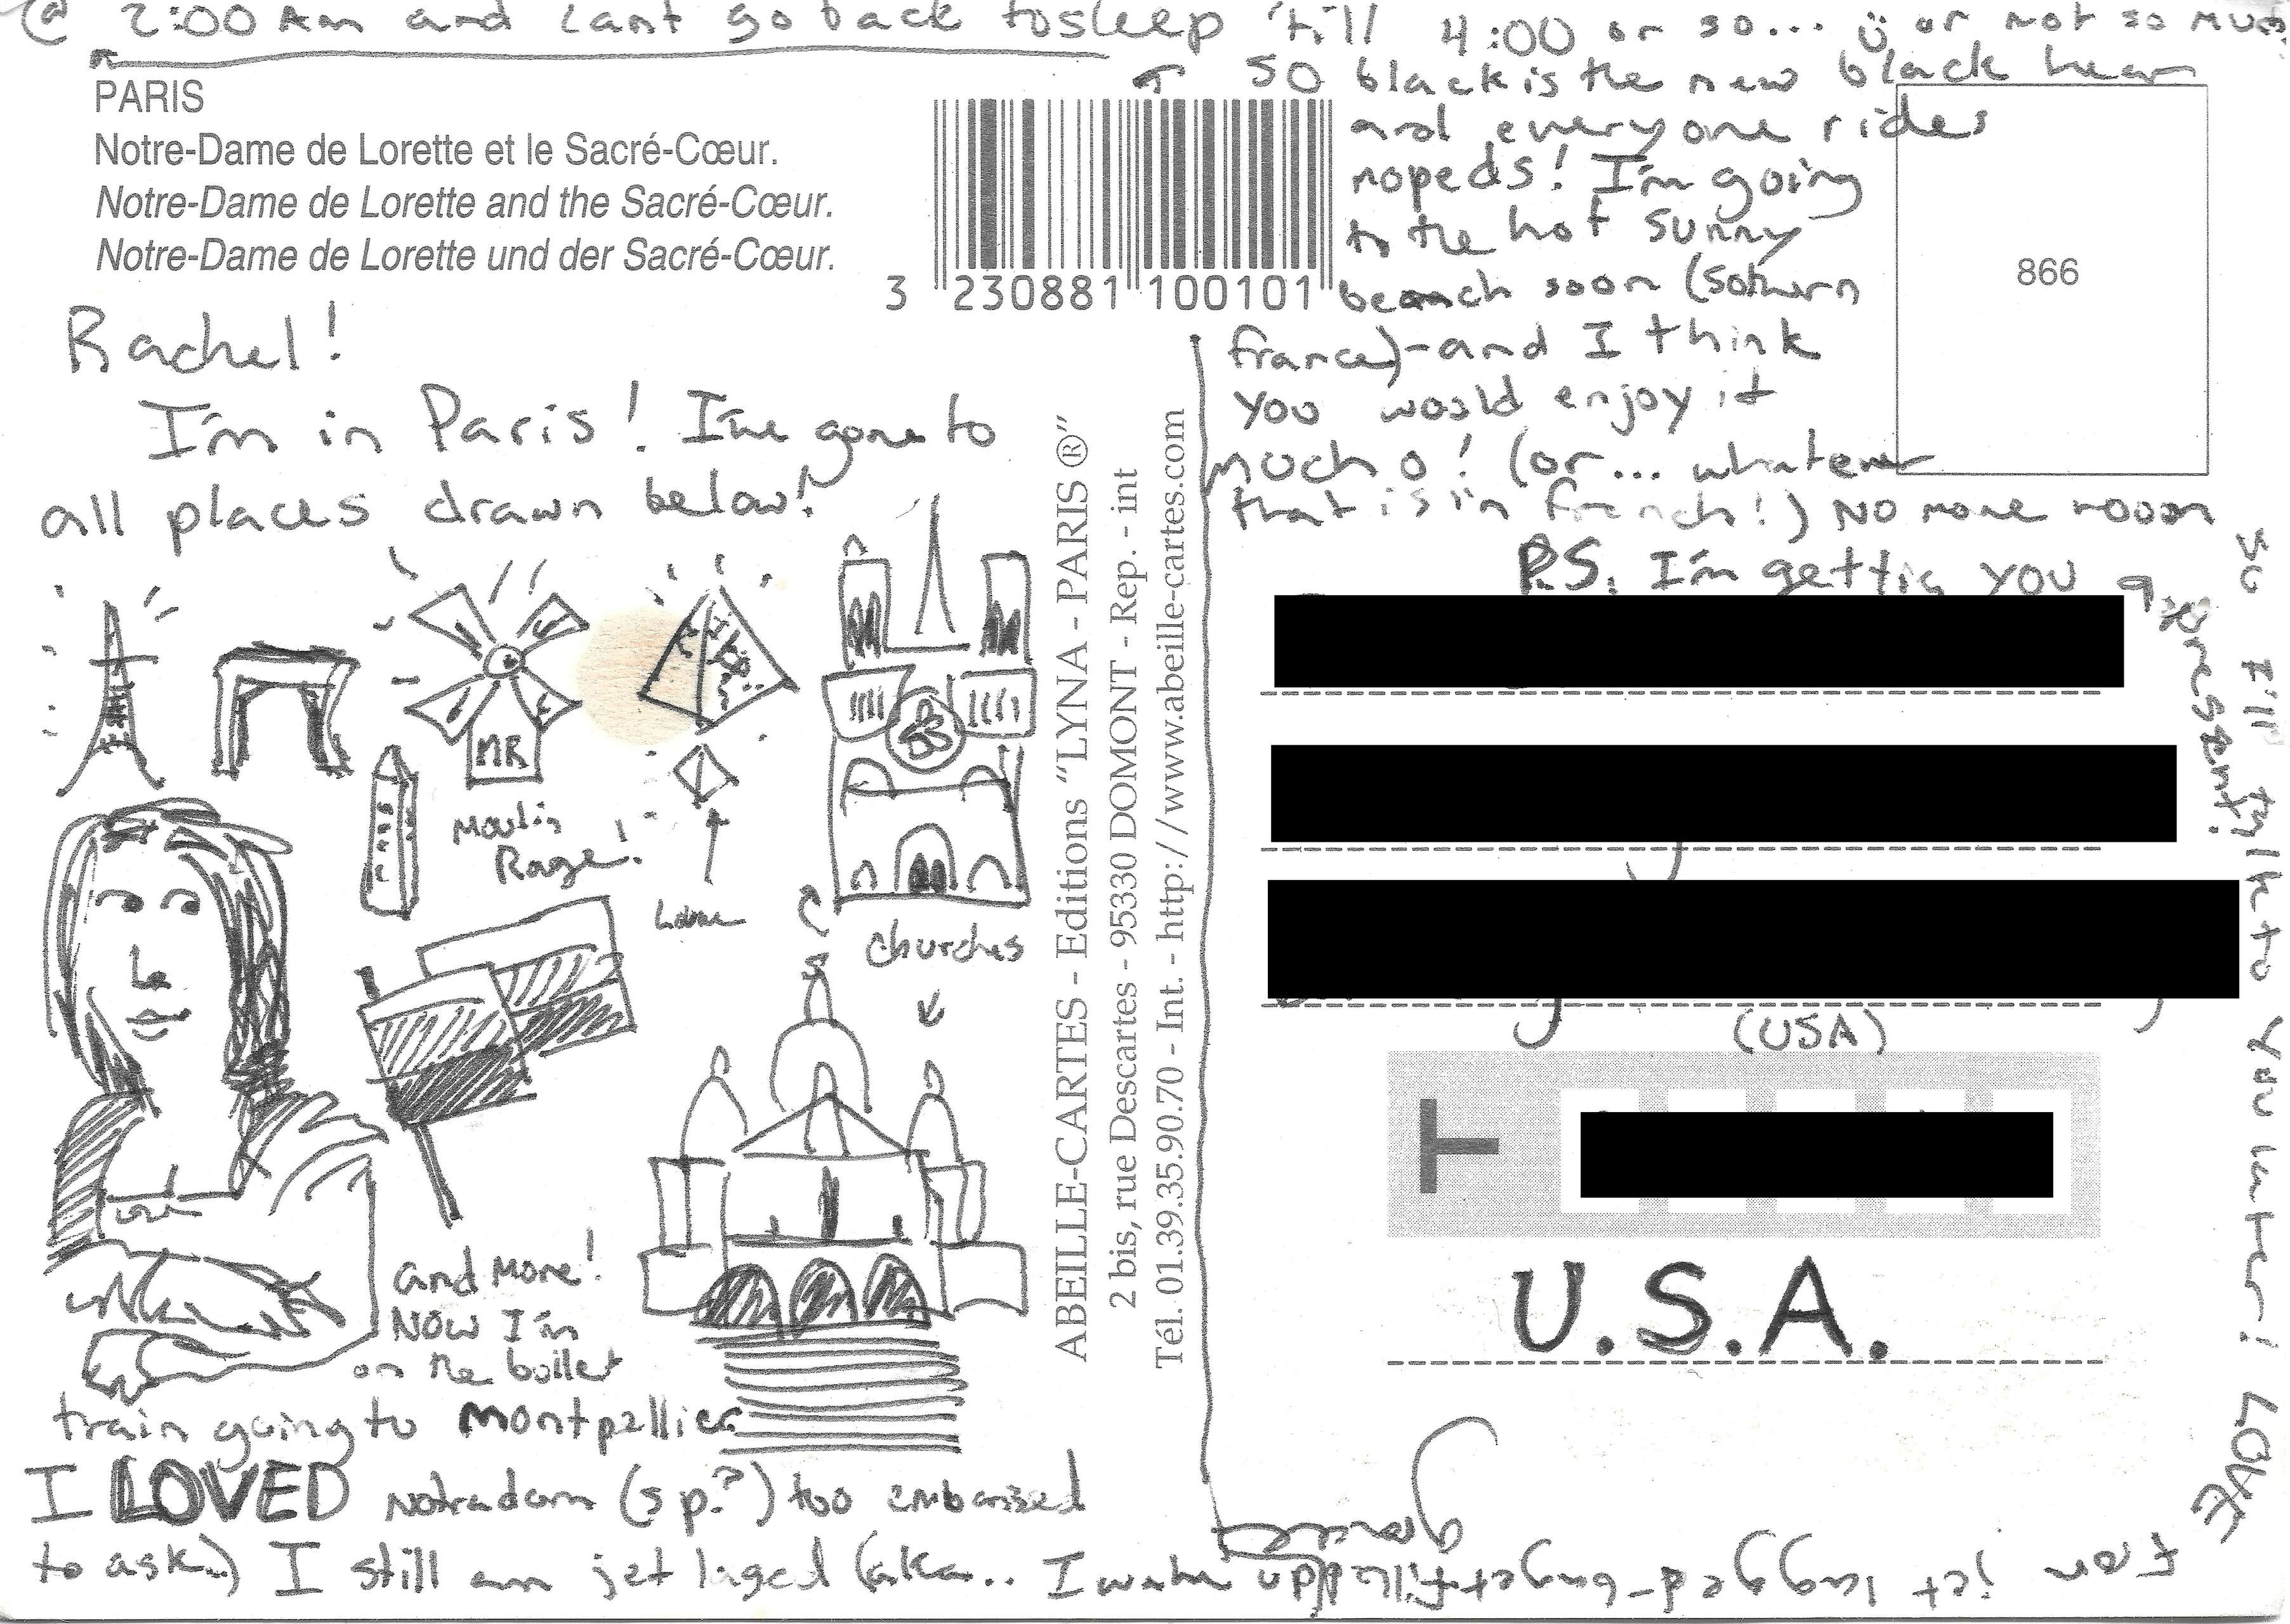 PARIS
Notre-Dame de Lorette et le Sacré-Cœur.
Notre-Dame de Lorette and the Sacré-Cœur.
Notre-Dame de Lorette und der Sacré-Cœur.
3 230881 100101
866
Rachel!
I'm in Paris! I've gone to
all places drawn below!
MR
Moulin
Roge!
Louvre
churches
and more!
NOW I'm
on the bullet
train going to Montpellier
I LOVED Notradam (sp.?) too embarised
to ask..) I still am jet laged (aka.. I wake up
@ 2:00 Am and cant go back to sleep 'till 4:00 or so... or not so much
SO black is the new black hear
and everyone rides
mopeds! I'm going
to the hot sunny
beach soon (sothurn
france)-and I think
you would enjoy it
mucho! (or... whatever
that is in french!) No more room
so I'll tylk to you later! LOVE
Your jet lagged-baget-filled
grace
P.S. I'm gettig you a
present!
(USA)
T
U.S.A.
ABEILLE-CARTES - Editions "LYNA - PARIS ®"
2 bis, rue Descartes - 95330 DOMONT - Rep. - int
Tél. 01.39.35.90.70 - Int. - http://www.abeille-cartes.com